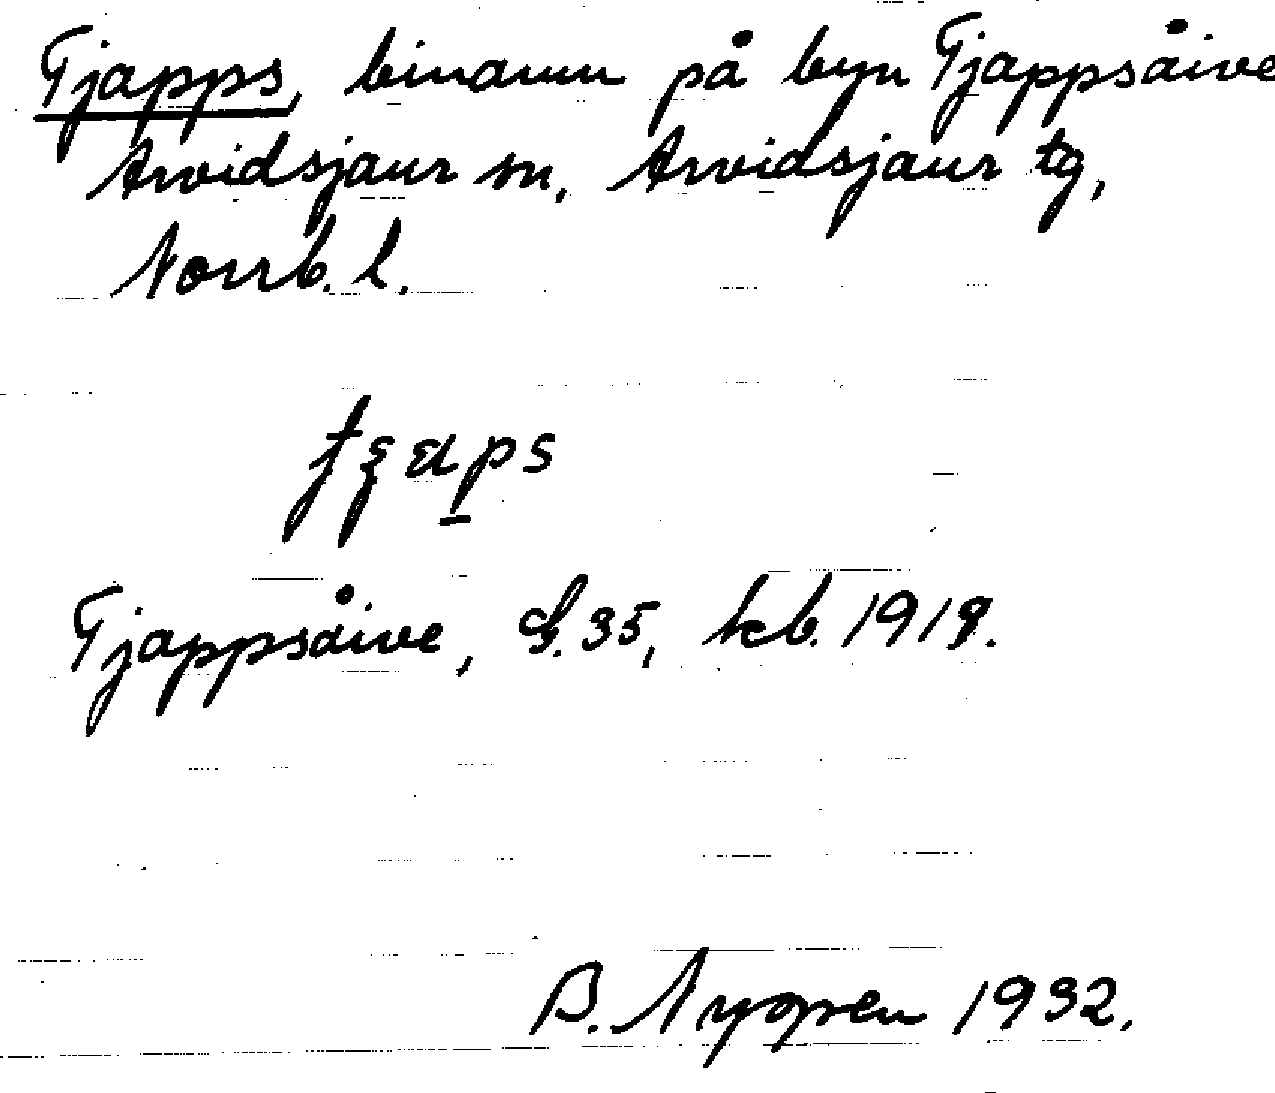 Tjapps, binamn på byn Tjappsåive
Arvidsjaur sn, Arvidsjaur tg,
Norrb. l.
Tjappsåive, G.35, kb. 1918.
B. Nyopen 1932.